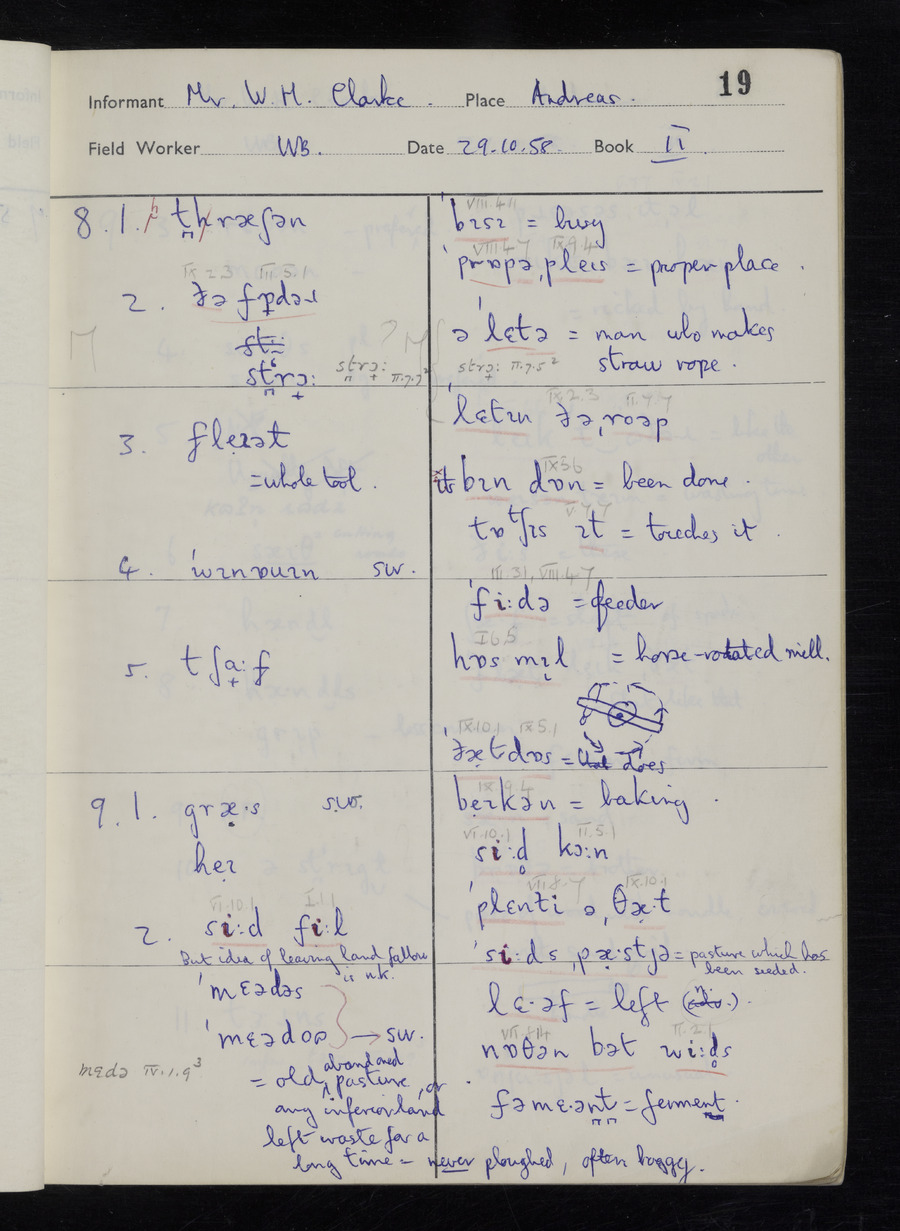 19
Informant Mr. W. H. Clarke. Place Andreas.
Field Worker WB. Date 29.10.58. Book II
8.1. thræʃən
IX.2.3 III.5.1
2. ðə
strɔ:
strɔ: II.7.7²
3. fleɪət
= whole tool.
4. ˈwɪnəuɪn SW.
5. tʃa:f
9.1. græ·s SW.
heɪ
VII.10.1 I.1.1
2. si:d fi:l
But idea of leaving land fallow
is n.k.
ˈmɛədəs
ˈmɛədoə → SW.
mɛdə IV.1.9³
= old abandoned pasture, or
any inferior land
left waste for a
long time = never ploughed, often boggy.
VIII.4.11
ˈbɪsɪ = busy
VIII.4.7 IX.9.4
ˈprɒpəˌpleɪs = proper place.
əˈlɛtə = man who makes
straw rope.
strɔ: II.7.5²
IX.2.3 II.7.7
ˈlɛtɪn ðəˌroəp
IX.5.6
its bɪn dɒn = been done.
V.7.7
tɒtʃɪs ɪt = touches it.
III.3.1, VIII.4.7
ˈfi:də = feeder
I.6.5
hɒs mɪl = horse-rotated mill.
IX.10.1 IX.5.1
ˈðæt dɒs = that does
IX.9.4
beɪkən = baking.
VII.10.1 II.5.1
si:d kɔ:n
VII.8.7 IX.10.1
ˈplɛnti əˌθæt
ˈsi:dsˌpæ·stjə = pasture which has
been seeded.
lɛ·əf = left (n.).
VII.8.14 II.2.1
nɒθən bət wi:ds
fəmɛ·ənt = ferment.